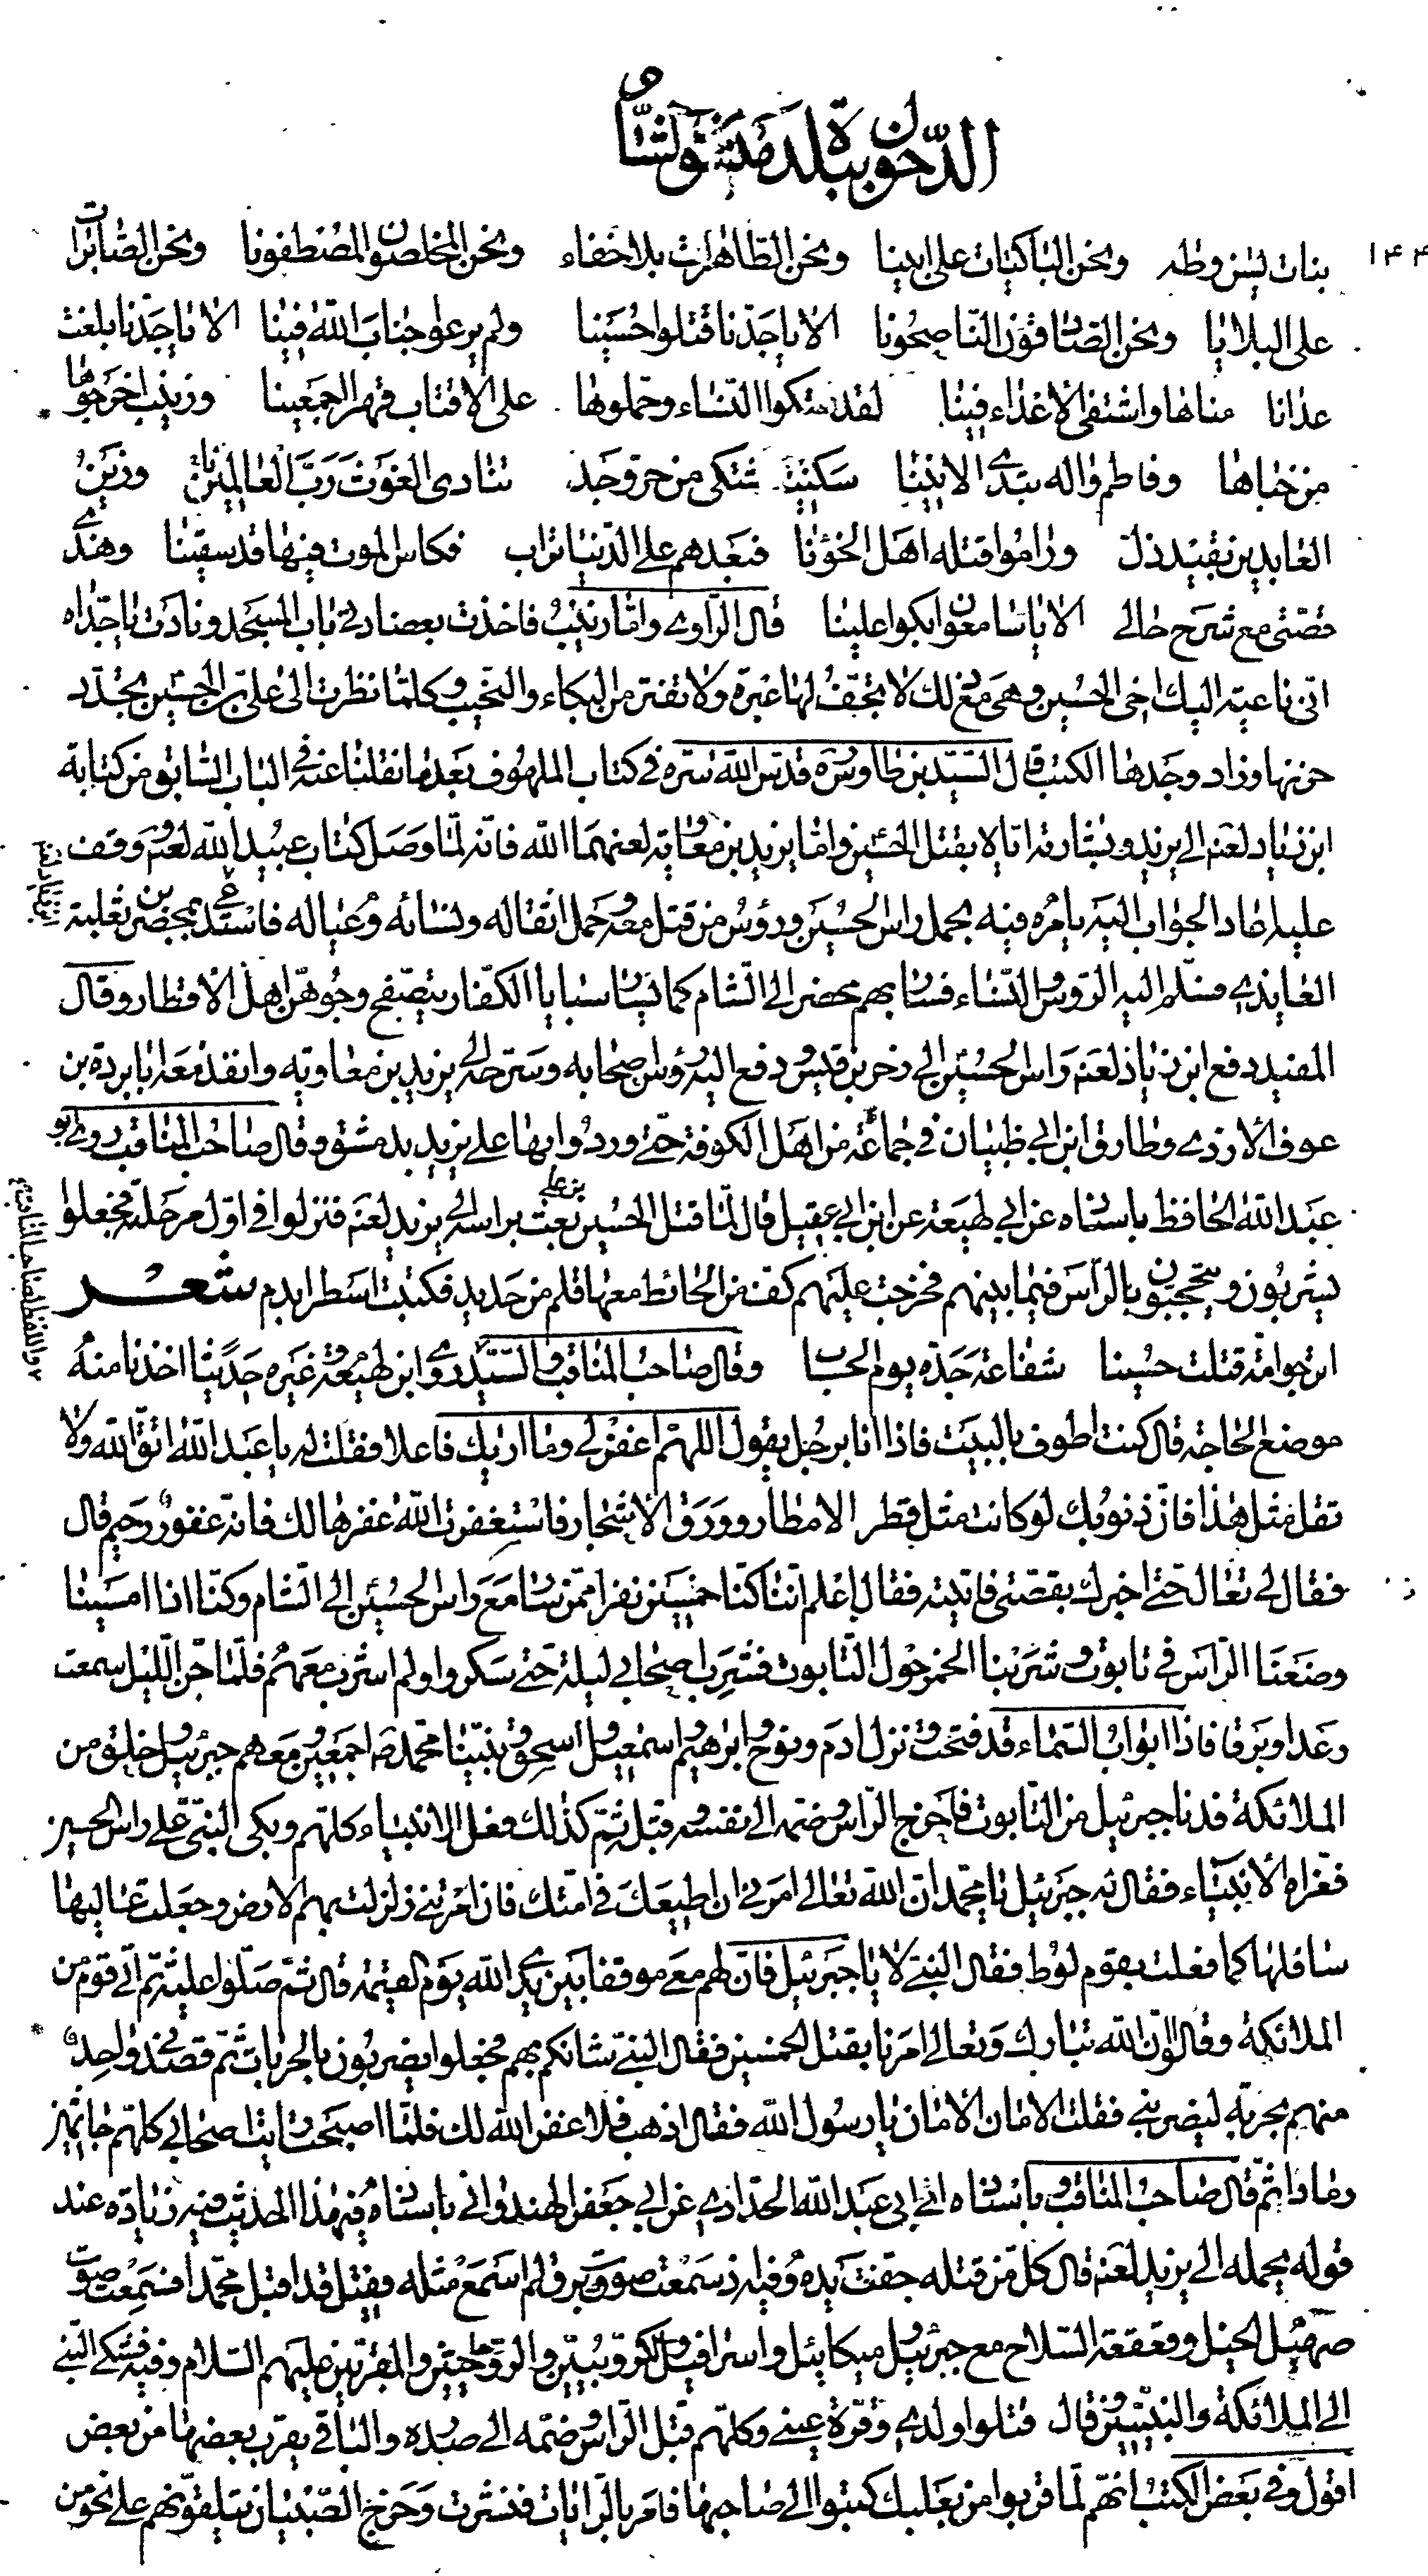 الدخول ببلد دمشق والشام
١٤٤
بنات يسن وطه ونحن الباكيات على ابينا ونحن الطاهرات بلا خفاء ونحن المخلصون المصطفونا ونحن الصابرات
على البلايا ونحن الصادقون الناصحونا الا يا جدنا قتلوا حسينا ولم يرعوا جناب الله فينا الا يا جدنا بلغت
عدانا مناها واشتفى الاعداء فينا لقد هتكوا النساء وحملوها على الاقتاب قهرا اجمعينا وزينب اخرجوها
من خباها وفاطم واله تبدى الانينا سكينة تشتكى من حر وجد تنادى الغوث رب العالمينا وزين
العابدين بقيد ذل وراموا قتله اهل الخؤنا فبعدهم على الدنيا تراب فكاس الموت فيها قد سقينا وهذى
قصتى مع شرح حالى الا يا سامعون ابكوا علينا قال الراوى واما زينب فاخذت بعضادتى باب المسجد ونادت يا جداه
انى ناعية اليك اخى الحسين وهى مع ذلك لا تجف لها عبرة ولا تفتر من البكاء والنحيب وكلما نظرت الى على بن الحسين تجدد
حزنها وزاد وجدها الكتب قال السيد بن طاوس ره قدس الله سره فى كتاب الملهوف بعد ما نقلنا عنه فى الباب السابق من كتابة
ابن زياد لعنه الى يزيد وبشارته اياه بقتل الحسين واما يزيد بن معاوية لعنهما الله فانه لما وصل كتاب عبيد الله لعنه ووقف
عليه اعاد الجواب اليه يامره فيه بحمل راس الحسين ورؤس من قتل معه وحمل اثقاله ونسائه وعياله فاستدعى بمحضر بن ثعلبة
العايذى فسلم اليه الرؤس والنساء فسار بهم محضر الى الشام كما يسار سبايا الكفار يتصفح وجوههن اهل الاقطار وقال
المفيد دفع ابن زياد لعنه راس الحسين الى زحر بن قيس ودفع اليه رؤس اصحابه وسرحه الى يزيد بن معاوية وانفذ معه ابا بردة بن
عوف الازدى وطارق ابن ابى ظبيان فى جماعة من اهل الكوفة حتى وردوا بها على يزيد بدمشق وقال صاحب المناقب روى ابو
عبد الله الحافظ باسناده عن ابى لهيعة عن ابن ابى عقيل قال لما قتل الحسين بن على بعث براسه الى يزيد لعنه فنزلوا فى اول مرحلة فجعلوا
يشربون ويتحجبون بالراس فيما بينهم فخرجت عليهم كف من الحائط معها قلم من حديد فكتبت اسطرا بدم شعر
اترجوا مة قتلت حسينا شفاعة جده يوم الحساب وقال صاحب المناقب والسيد روى ابن لهيعة وغيره حديثا اخذنا منه
موضع الحاجة قال كنت اطوف بالبيت فاذا انا برجل يقول اللهم اغفر لى وما اريك فاعلا فقلت له يا عبد الله اتق الله ولا
تقل مثل هذا فان ذنوبك لو كانت مثل قطر الامطار وورق الاشجار فاستغفرت الله غفرها لك فانه غفور رحيم قال
فقال لى تعال حتى اخبرك بقصتى فاتيته فقال اعلم اننا كنا خمسين نفرا ممن سار مع راس الحسين الى الشام وكنا اذا امسينا
وضعنا الراس فى تابوت وشربنا الخمر حول التابوت فشرب اصحابى ليلة حتى سكروا ولم اشرب معهم فلما جن الليل سمعت
رعدا وبرقا فاذا ابواب السماء قد فتحت ونزل ادم ونوح وابرهيم واسمعيل واسحق ونبينا محمد ص اجمعين ومعهم جبرئيل وخلق من
الملائكة فدنا جبرئيل من التابوت فاخرج الراس وضمه الى نفسه وقبله ثم كذلك فعل الانبياء كلهم وبكى النبى على راس الحسين
فعزاه الانبياء فقال له جبرئيل يا محمد ان الله تعالى امرنى ان اطيعك فى امتك فان امرتنى زلزلت بهم الارض وجعلت عاليها
سافلها كما فعلت بقوم لوط فقال النبى لا يا جبرئيل فان لهم معى موقفا بين يدى الله يوم القيمة قال ثم صلوا عليه ثم اتى قوم من
الملائكة وقالوا ان الله تبارك وتعالى امرنا بقتل الخمسين فقال النبى شانكم بهم فجعلوا يضربون بالحربات ثم قصدنى واحد
منهم بحربة ليضربنى فقلت الامان الامان يا رسول الله فقال اذهب فلا غفر الله لك فلما اصبحت رايت اصحابى كلهم جاثمين
رمادا ثم قال صاحب المناقب وباسناده الى ابى عبد الله الحدادى عن ابى جعفر الهندوانى باسناده فى هذا الحديث وفيه زيادة عند
قوله يحمله الى يزيد لعنه قال كل من قتله جفت يده وفيه اذ سمعت صوت برق لم اسمع مثله فقيل قد اقبل محمد فسمعت صوت
صهيل الخيل وقعقعة السلاح مع جبرئيل وميكائيل واسرافيل والكروبيين والروحانيين والمقربين عليهم السلام وفيه فشكى النبى
الى الملائكة والنبيين وقال قتلوا ولدى وقرة عينى وكلهم قبل الراس وضمه الى صدره والباقى يقرب بعضها من بعض
اقول وفى بعض الكتب انهم لما قربوا من بعلبك كتبوا الى صاحبها فامر بالرايات فنشرت وخرج الصبيان يتلقونهم على نحو من
واللفظ لصاحب المناقب